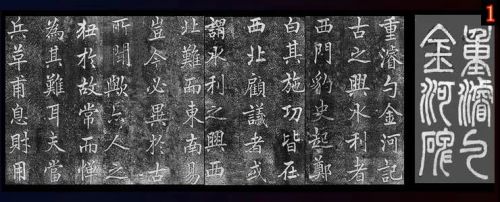 1
重濬勺
金河碑
重濬勺金河記
古之興水利者
西門豹史起鄭
白其施功皆在
西北顧議者或
謂水利之興西
北難而東南易
豈今必異於古
所聞歟人之
狃於故常而憚
為其難耳夫當
兵革甫息財用